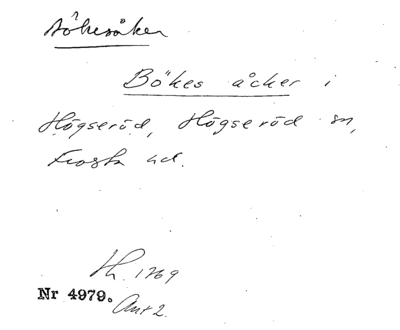 Bökesåker
Bökes åcker i
Högseröd, Högseröd sn,
Frosta hd.
Lh. 1769
Nr 4979. Ant 2.